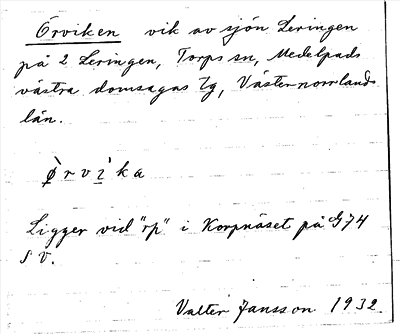 Örviken vik av sjön Leringen
på 2 Leringen, Torps sn, Medelpads
västra domsagas tg, Västernorrlands
län.
ø̀rvika
Ligger vid "rp" i Korpnäset på G74
SV.
Valter Jansson 1932